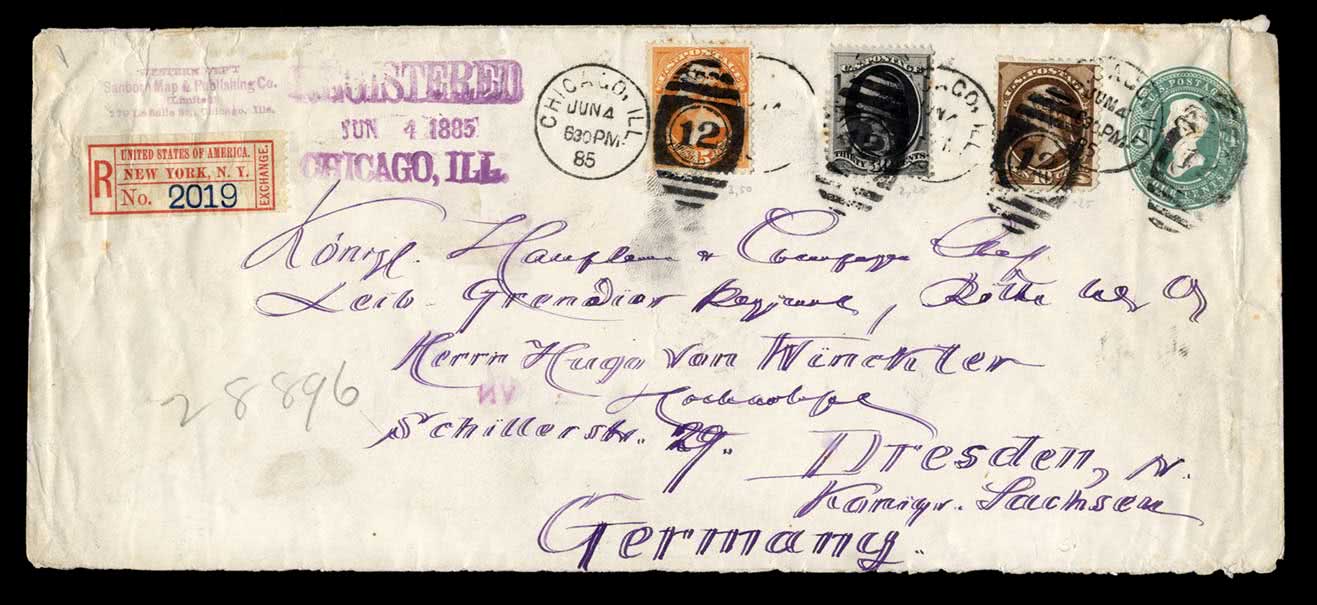 WESTERN DEP'T
Sanborn Map & Publishing Co.
(Limited)
La Salle St., Chicago, Ills.
REGISTERED
JUN 4 1885
CHICAGO, ILL.
R
UNITED STATES OF AMERICA.
NEW YORK, N. Y.
No. 2019
EXCHANGE.
CHICAGO, ILL.
JUN 4
630 PM
85
U.S. POSTAGE
12
U.S. POSTAGE
THIRTY CENTS
CAGO, ILL
U.S. POSTAGE
12
JUN 4
630 PM
85
U.S. POSTAGE
CENTS
3,50
2,25
-25
Königl. Hauptmann & Compagnie Chef
Leib Grenadier Regiment,
Herrn Hugo von Winckler
Hochwohlge
28896
NY
Schillerstr. 29.
Dresden, N.
Königr. Sachsen
Germany.